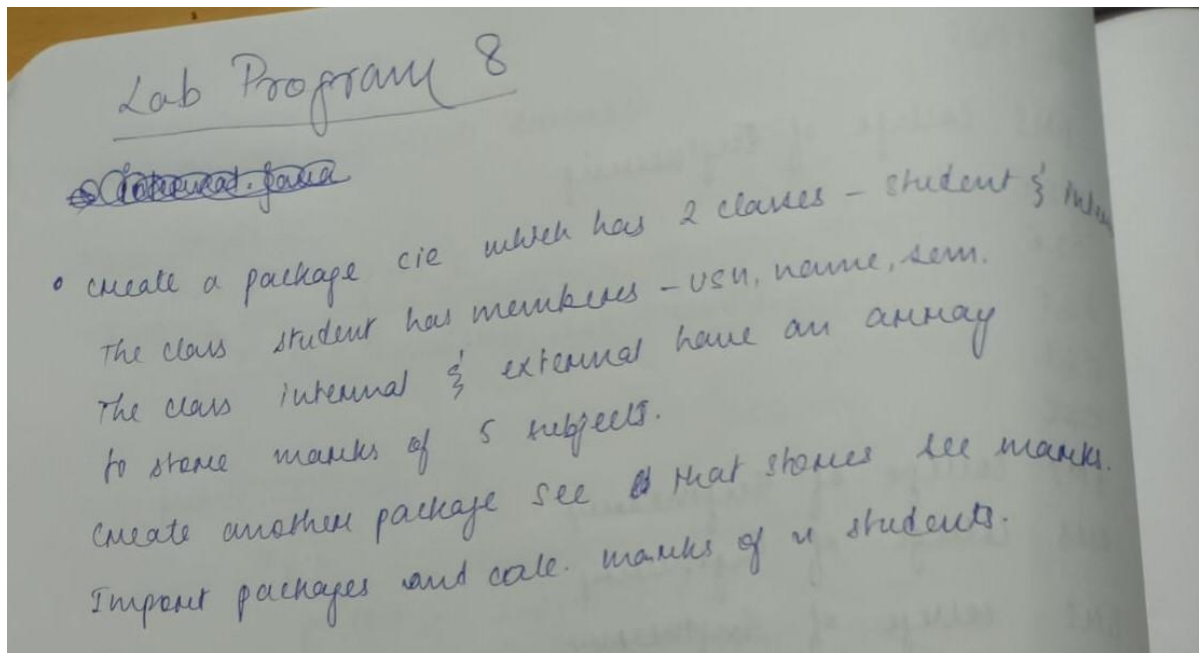 Lab Program 8
• create a package cie which has 2 classes - student &
The class student has members - usn, name, sem.
The class internal & external have an array
to store marks of 5 subjects.
Create another package see that stores see marks.
Import packages and calc. marks of n students.